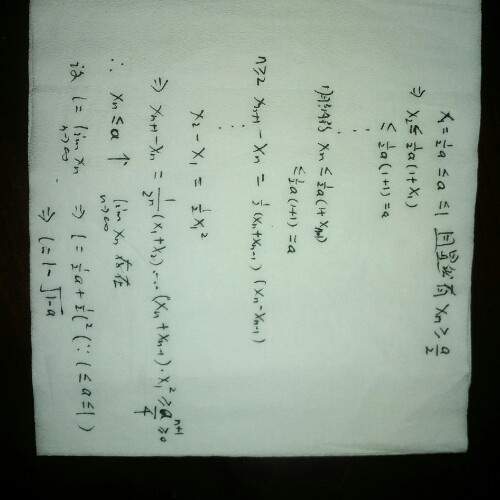 x₁ = ½a ≤ a ≤ 1 同时有 xₙ ≥ a/2
⇒ x₂ ≤ ½a(1+x₁)
≤ ½a(1+1) = a
⋮
xₙ ≤ ½a(1+xₙ₋₁)
≤ ½a(1+1) = a
n≥2 xₙ₊₁ − xₙ = ½(xₙ+xₙ₋₁)(xₙ−xₙ₋₁)
⋮
x₂ − x₁ = ½x₁²
⇒ xₙ₊₁ − xₙ = 1/2ⁿ (x₁+x₂)⋯(xₙ+xₙ₋₁)·x₁² ≥ aⁿ⁺¹/4 ≥ 0
∴ xₙ ≤ a ↑ lim n→∞ xₙ 存在
设 l = lim n→∞ xₙ ⇒ l = ½a + ½l² (∵ l ≤ a ≤ 1)
⇒ l = 1 − √(1−a)